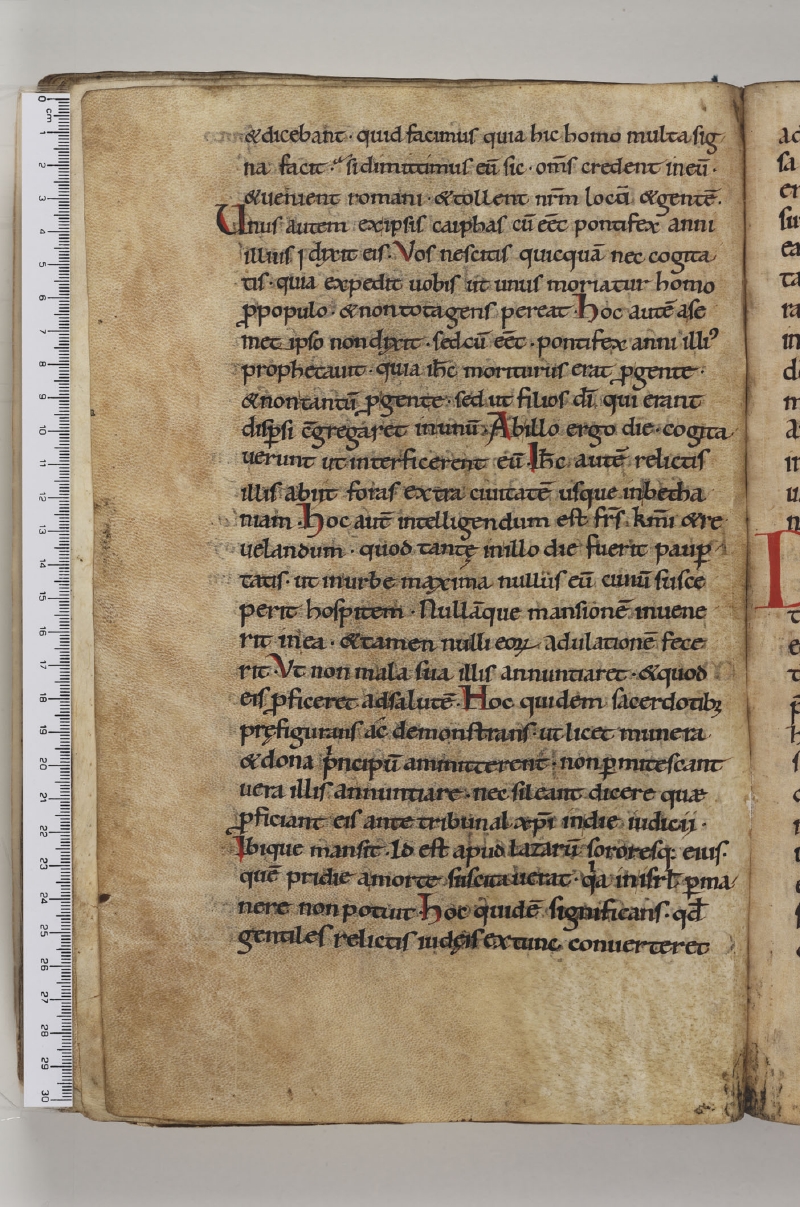 &dicebant · quid facimus quia hic homo multa sig
na facit · si dimittimus eū sic · om̄s credent ineū ·
&uenient romani · &tollent nr̄m locū &gentē.
Unus autem exipsis caiphas cū eēt pontifex anni
illius dixit eis. Vos nescitis quicquā nec cogita
tis · quia expedit uobis ut unus moriatur homo
ꝓpopulo · &non tota gens pereat. Hoc autē ase
met ipso non dixit · sed cū eēt · pontifex anni illiꝰ
prophetauit · quia ih̄c moriturus erat ꝓgente ·
&nontantū ꝓgente · sed ut filios dī qui erant
disꝑsi cōgregaret inunū. Abillo ergo die cogita
uerunt ut interficerent eū. Ih̄c autē relictis
illis abiit foras extra ciuitatē usque inbetha
niam. Hoc autē intelligendum est fr̄s km̄i &re
uelandum · quod tantę inillo die fuerit pauꝑ
tatis · ut inurbe maxima nullus eū cunū susce
perit hospitem · Nullāque mansionē inuene
rit inea · &tamen nulli eoꝝ adulationē fece
rit. Vt non mala sua illis annuntiaret · &quod
eis ꝓficeret adsalutē. Hoc quidem sacerdotibꝫ
pręfigurans ac demonstrans · ut licet munera
&dona p̄ncipū amitterent · non ꝑmitescant
uera illis annuntiare · nec sileant dicere quæ
ꝓficiant eis ante tribunal xp̄i indie iudicii ·
Ibique mansit. Id est apud lazarū sororesq; eius.
quē pridie amorte suscitauerat · qa inisrl̄ ꝑma
nere non potuit. Hoc quidē significans · qd̄
gentiles relictis iudęis extunc conuerteret